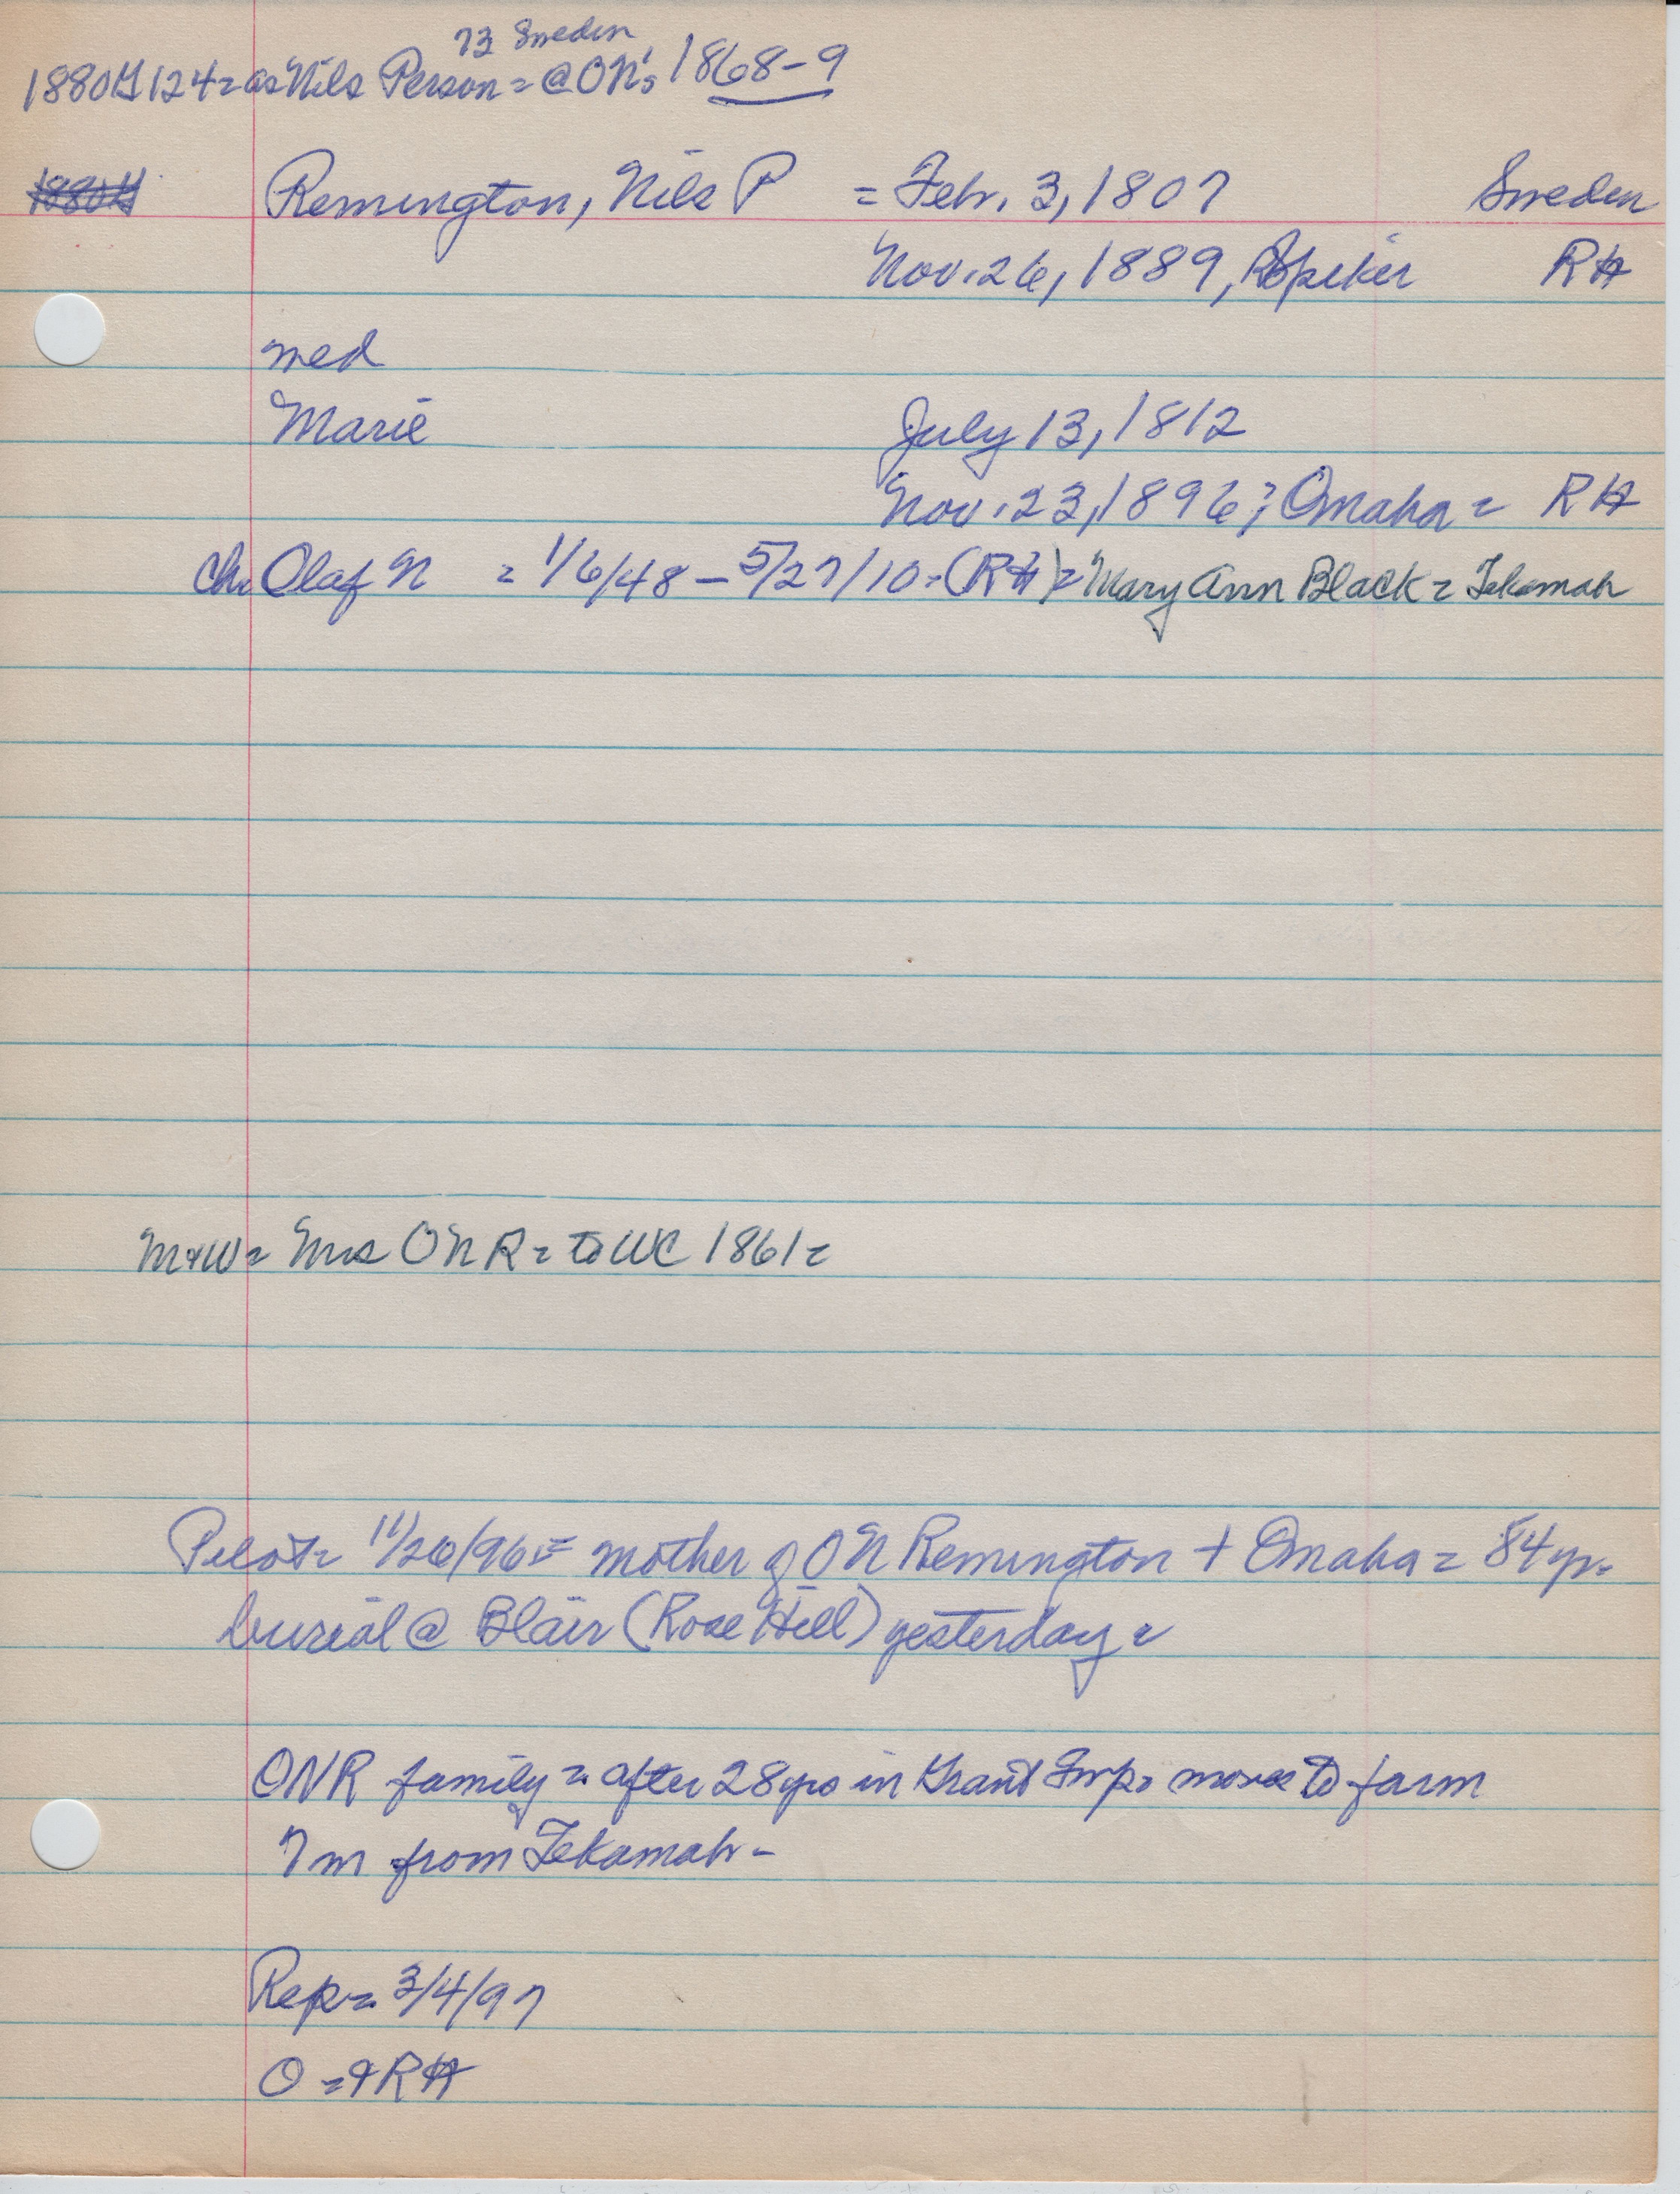 73 Sweden
1880G124= as Nils Person = @ON's 1868-9
1880H Remington, Nils P = Febr. 3, 1807 Sweden
Nov. 26, 1889, RH
med
Marie July 13, 1812
Nov. 23, 1896; Omaha = RH
Ch. Olaf N = 1/6/48 - 5/27/10 = (RH) = Mary Ann Black = Tekamah
M+W= Mrs ONR = to WC 1861=
Pilot= 11/26/96 = mother of ON Remington + Omaha = 84 yr.
burial @ Blair (Rose Hill) yesterday =
ONR family = after 28 yrs in Grant Twp. moves to farm
7 m from Tekamah -
Rep = 3/4/97
O = + RH